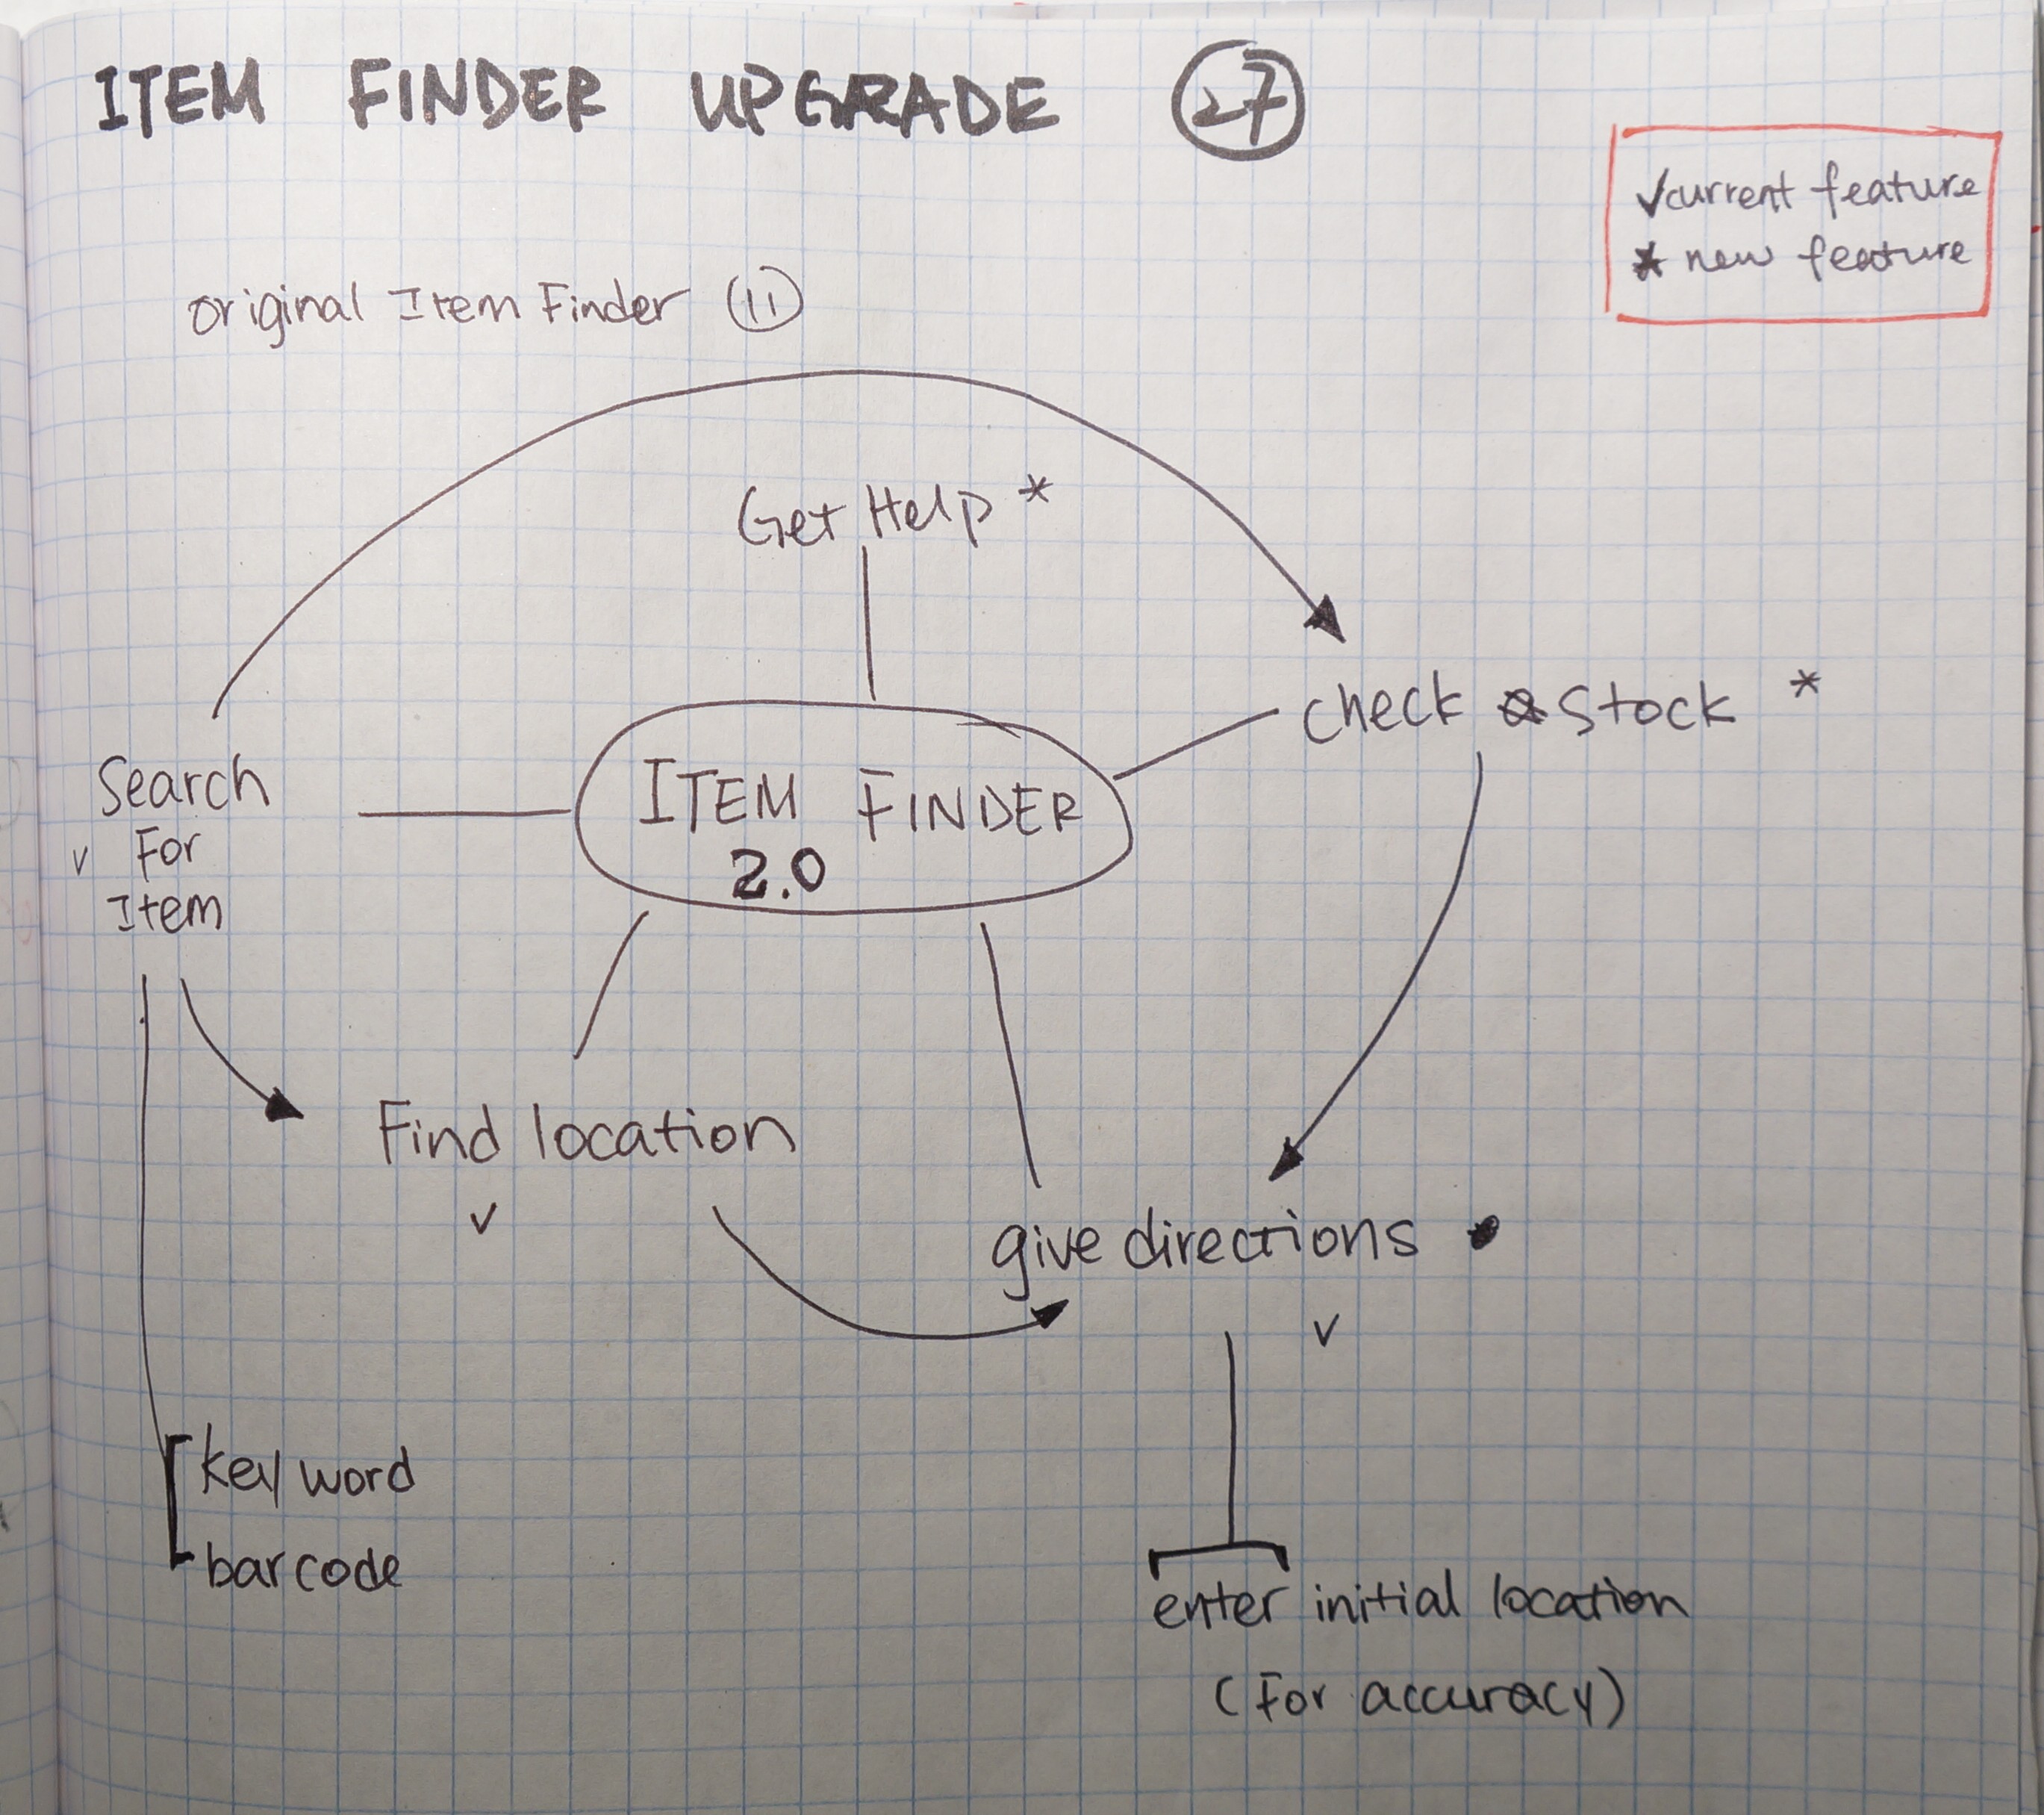 ITEM FINDER UPGRADE 27
✓current feature
* new feature
original Item Finder 11
Get Help *
check stock *
Search
✓ For
Item
ITEM FINDER
2.0
Find location
✓
give directions
✓
key word
barcode
enter initial location
(For accuracy)